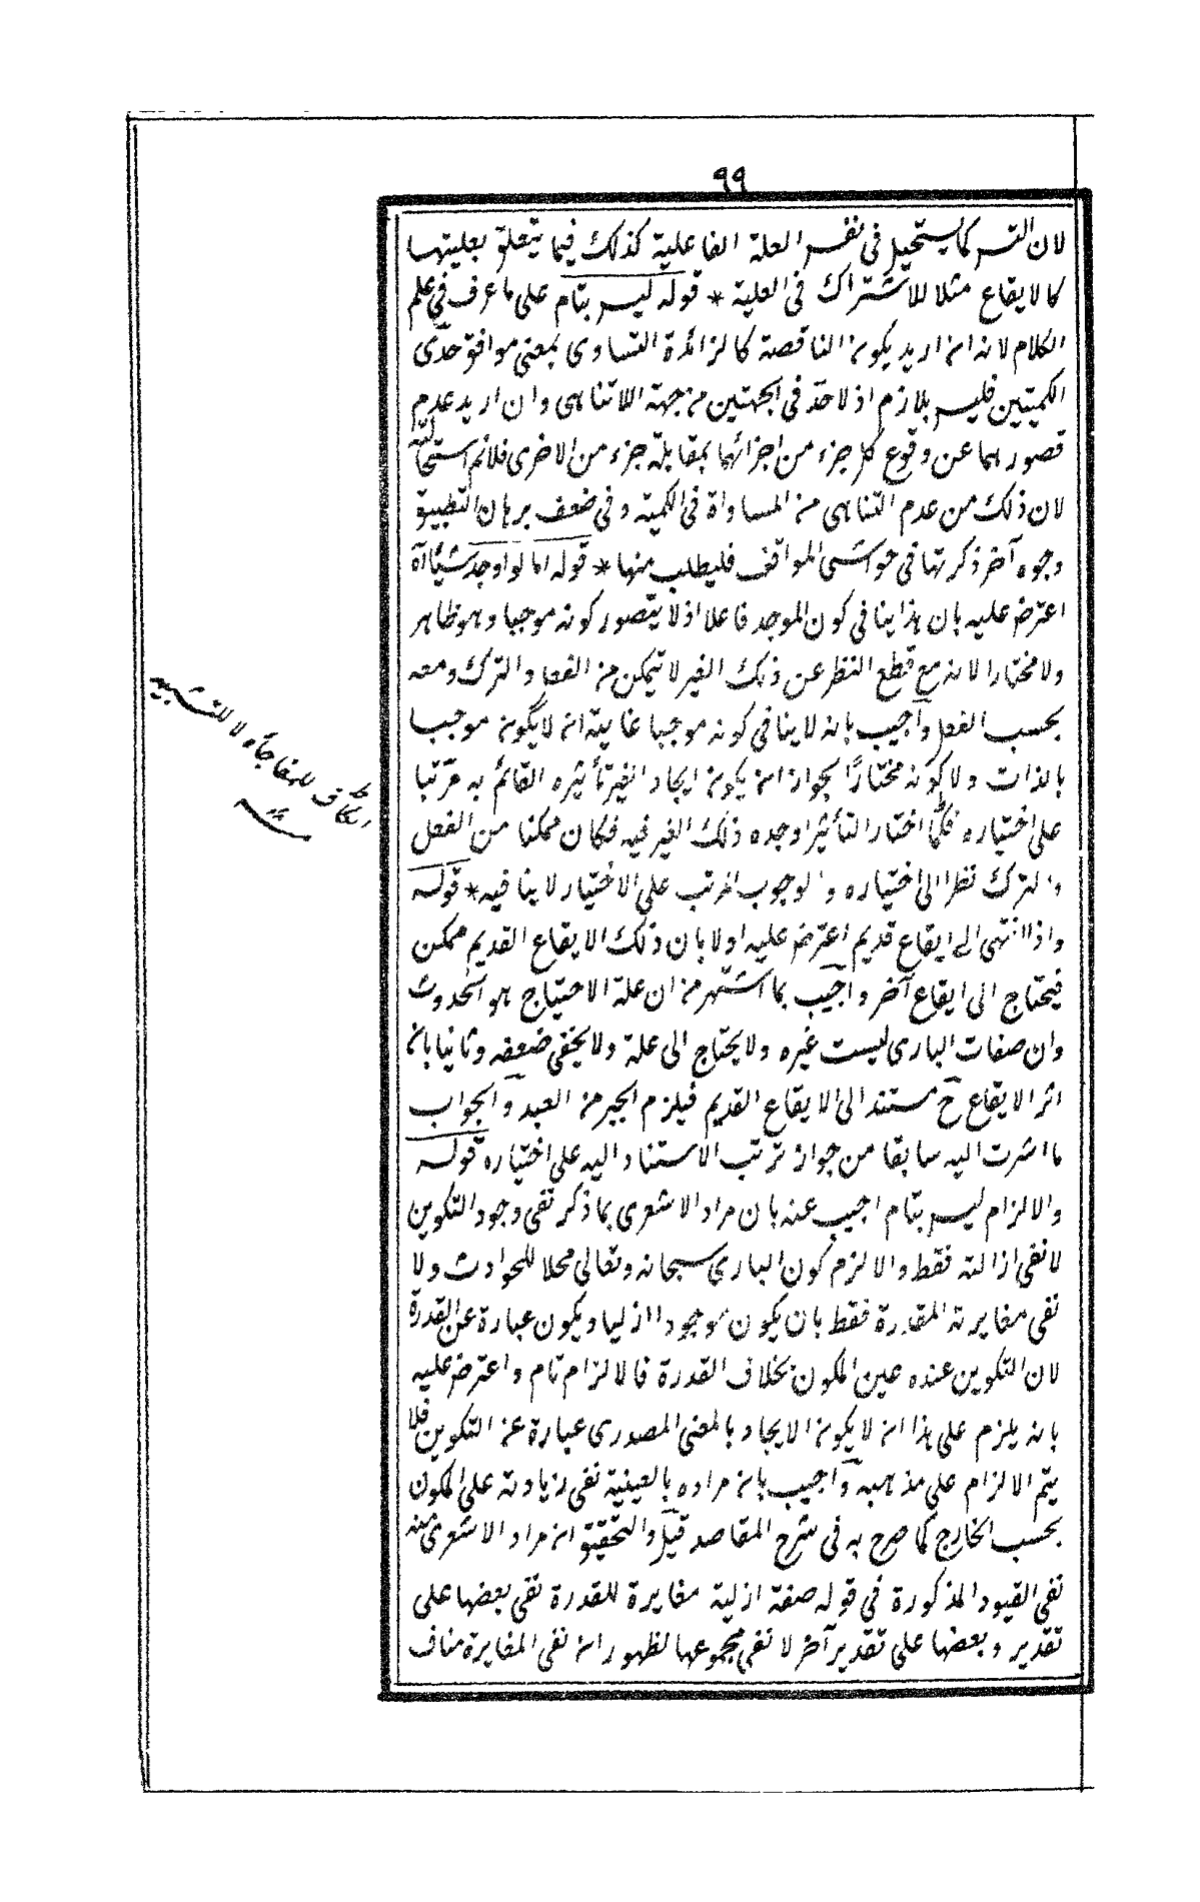 ٩٩
لان التس كما يستحيل فى نفس العلة الفاعلية كذلك فيما يتعلق بعليتها
كالايقاع مثلا للاشتراك فى العلية * قوله ليس بتام على ما عرف فى علم
الكلام لانه ان اريد بكون الناقصة كالزائدة التساوى بمعنى موافق حدّى
الكميتين فليس بلازم اذ لا حدّ فى الجهتين من جهة اللاتناهى وان اريد عدم
قصورهما عن وقوع كل جزء من اجزائهما بمقابلة جزء من الاخرى فلانم استحالته
لان ذلك من عدم التناهى من المساواة فى الكمية وفى ضعف برهان التطبيق
وجوه آخر ذكرتها فى حواشى المواقف فليطلب منها * قوله اما لو اوجد شيئا آه
اعترض عليه بان هذا ينافى كون الموجد فاعلا اذ لا يتصور كونه موجبا وهو ظاهر
ولا مختارا لانه مع قطع النظر عن ذلك الغير لا يتمكن من الفعل والترك ومعه
يحسب الفعل واجيب بانه لا ينافى كونه موجبا غايته ان لا يكون موجب
بالذات ولا كونه مختارًا لجواز ان يكون ايجاد الغير تأثيره القائم به مرتبا
على اختياره فكما اختار التأثير اوجده ذلك الغير فيه فكان ممكنا من الفعل
والترك نظرا الى اختياره والوجوب المرتب على الاختيار لا ينافيه * قوله
واذا انتهى الى ايقاع قديم اعترض عليه اولا بان ذلك الايقاع القديم ممكن
فيحتاج الى ايقاع آخر واجيب بما اشتهر من ان علة الاحتياج هو الحدوث
وان صفات البارى ليست غيره ولا يحتاج الى علة ولا يخفى ضعفه وثانيا بان
اثر الايقاع ح مستند الى الايقاع القديم فيلزم الجبر من العبد والجواب
ما اشرت اليه سابقا من جواز ترتب الاستناد اليه على اختياره قوله
والالزام ليس بتام اجيب عنه بان مراد الاشعرى بما ذكر نفى وجود التكوين
لا نفى ازالته فقط والا لزم كون البارى سبحانه وتعالى محلا للحوادث ولا
نفى مغايرته المقدرة فقط بان يكون موجودا ازليا ويكون عبارة عن القدرة
لان التكوين عنده عين المكون بخلاف القدرة فالالزام تام واعترض عليه
بانه يلزم على هذا ان لا يكون الايجاد بالمعنى المصدرى عبارة عن التكوين فلا
يتم الالزام على مذهبه واجيب بان مراده بالعينية نفى زيادته على المكون
بحسب الخارج كما صرح به فى شرح المقاصد قيل والتحقيق ان مراد الاشعرى منه
نفى القيود المذكورة فى قوله صفة ازلية مغايرة للقدرة نفى بعضها على
تقدير وبعضها على تقدير آخر لا نفى مجموعها لظهور ان نفى المغايرة مناف
الكاف للمفاجأة لا للتشبيه